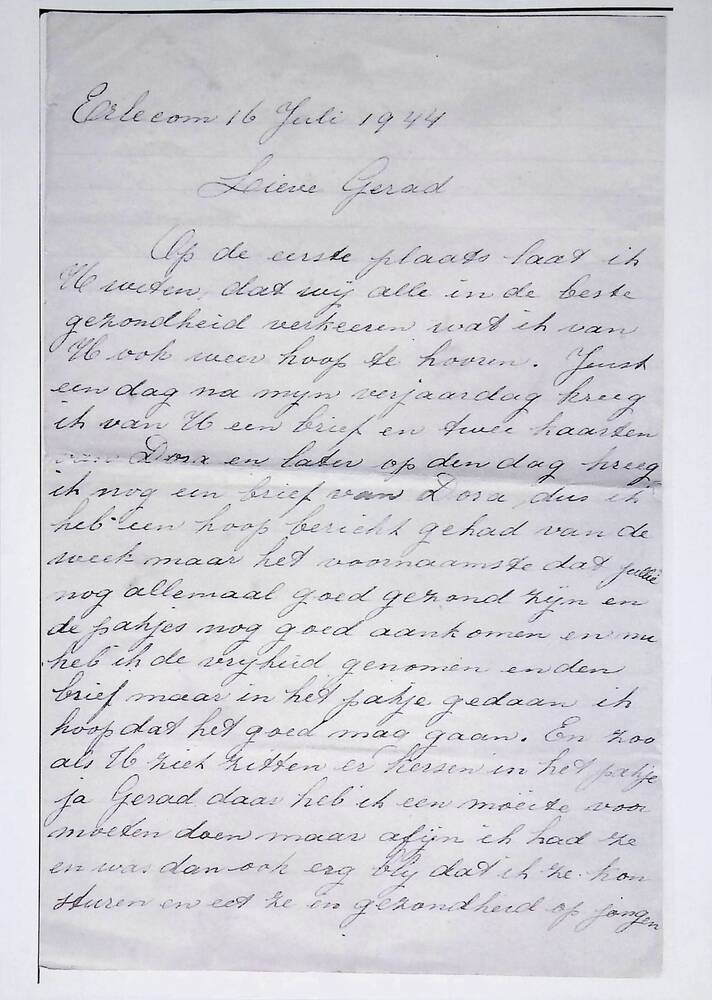 Erlecom 16 Juli 1944
Lieve Gerad
Op de eerste plaats laat ik
U weten, dat wij alle in de beste
gezondheid verkeeren wat ik van
U ook weer hoop te hooren. Juist
een dag na mijn verjaardag kreeg
ik van U een brief en twee kaarten
van Dora en later op den dag kreeg
ik nog een brief van Dora, dus ik
heb een hoop bericht gehad van de
week maar het voornaamste dat jullie
nog allemaal goed gezond zijn en
de pakjes nog goed aankomen en nu
heb ik de vrijheid genomen en den
brief maar in het pakje gedaan ik
hoop dat het goed mag gaan. En zoo
als U ziet zitten er kersen in het pakje
ja Gerad daar heb ik een moeite voor
moeten doen maar afijn ik had ze
en was dan ook erg blij dat ik ze kon
sturen en eet ze in gezondheid op jongen